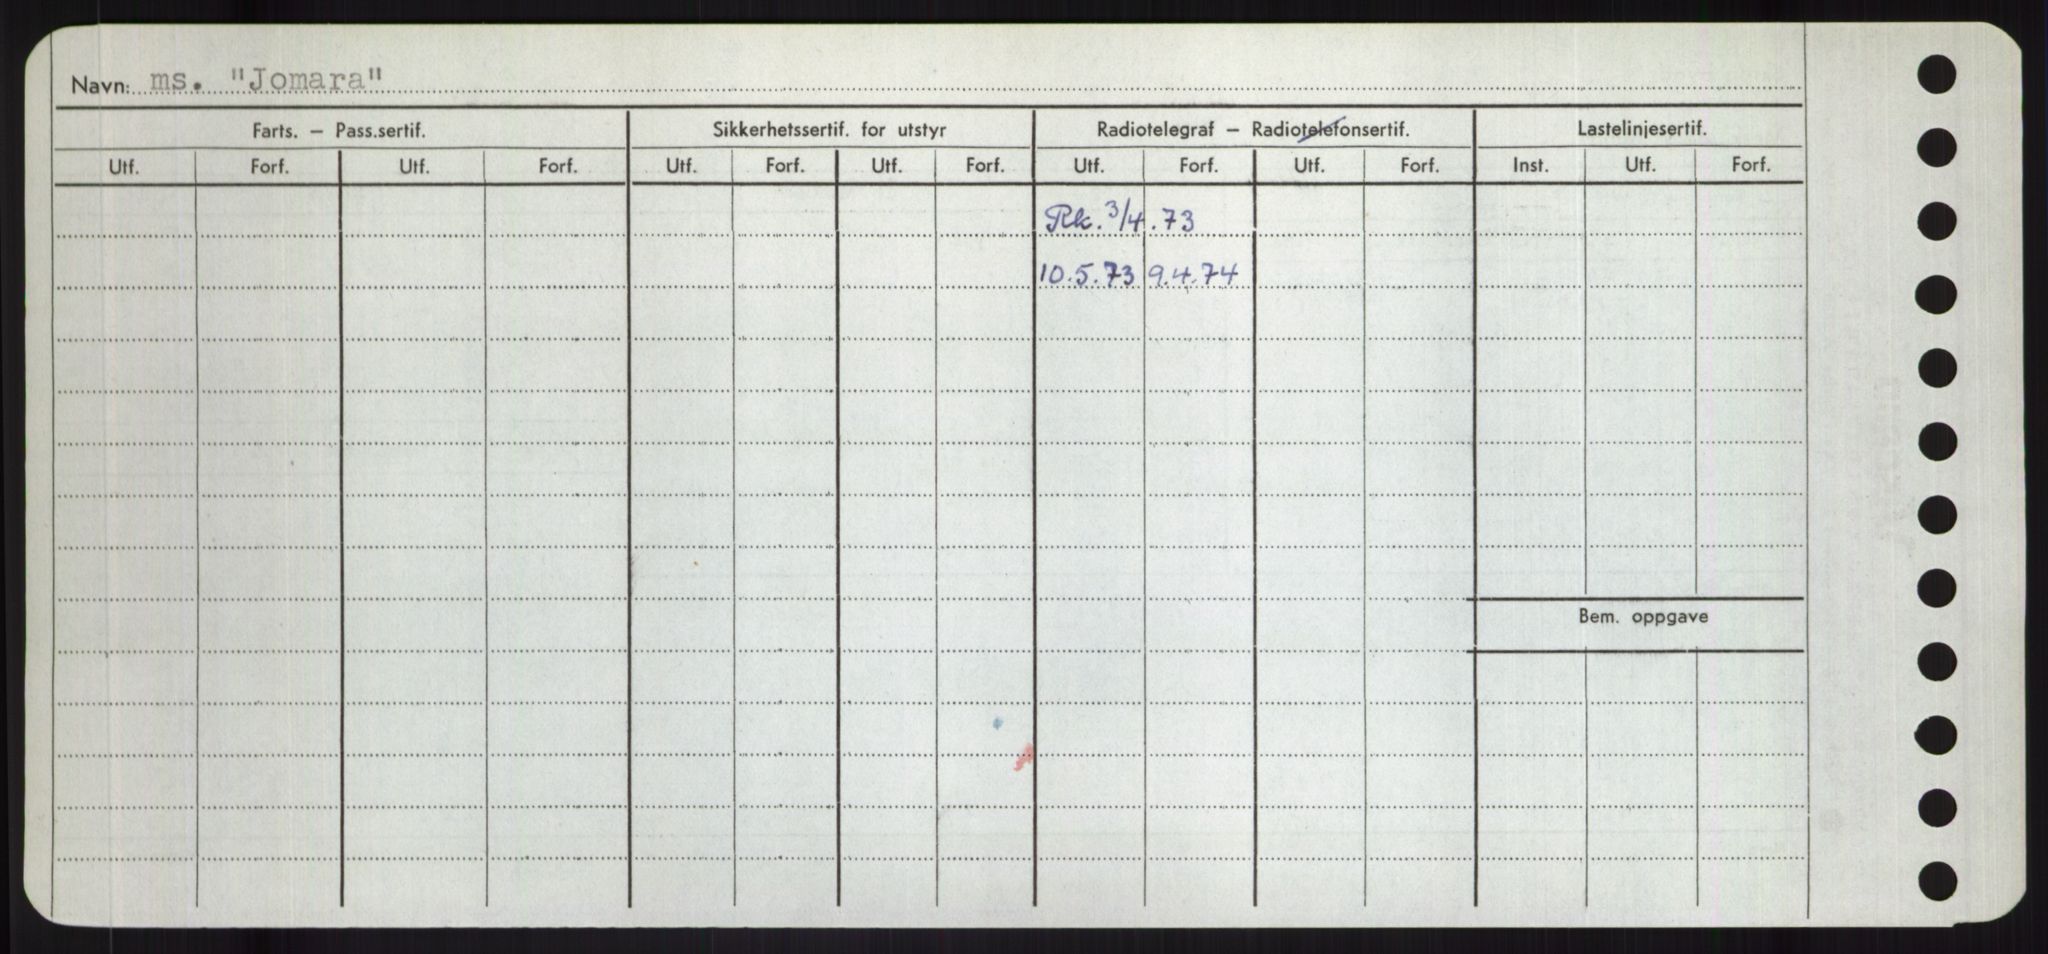 Navn: ms. "Jomara"
Farts. – Pass.sertif. Sikkerhetssertif. for utstyr Radiotelegraf – Radiotelefonsertif. Lastelinjesertif.
Utf. Forf. Utf. Forf. Utf. Forf. Utf. Forf. Utf. Forf. Utf. Forf. Inst. Utf. Forf.
Rk. 3/4.73
10.5.73 9.4.74
Bem. oppgave